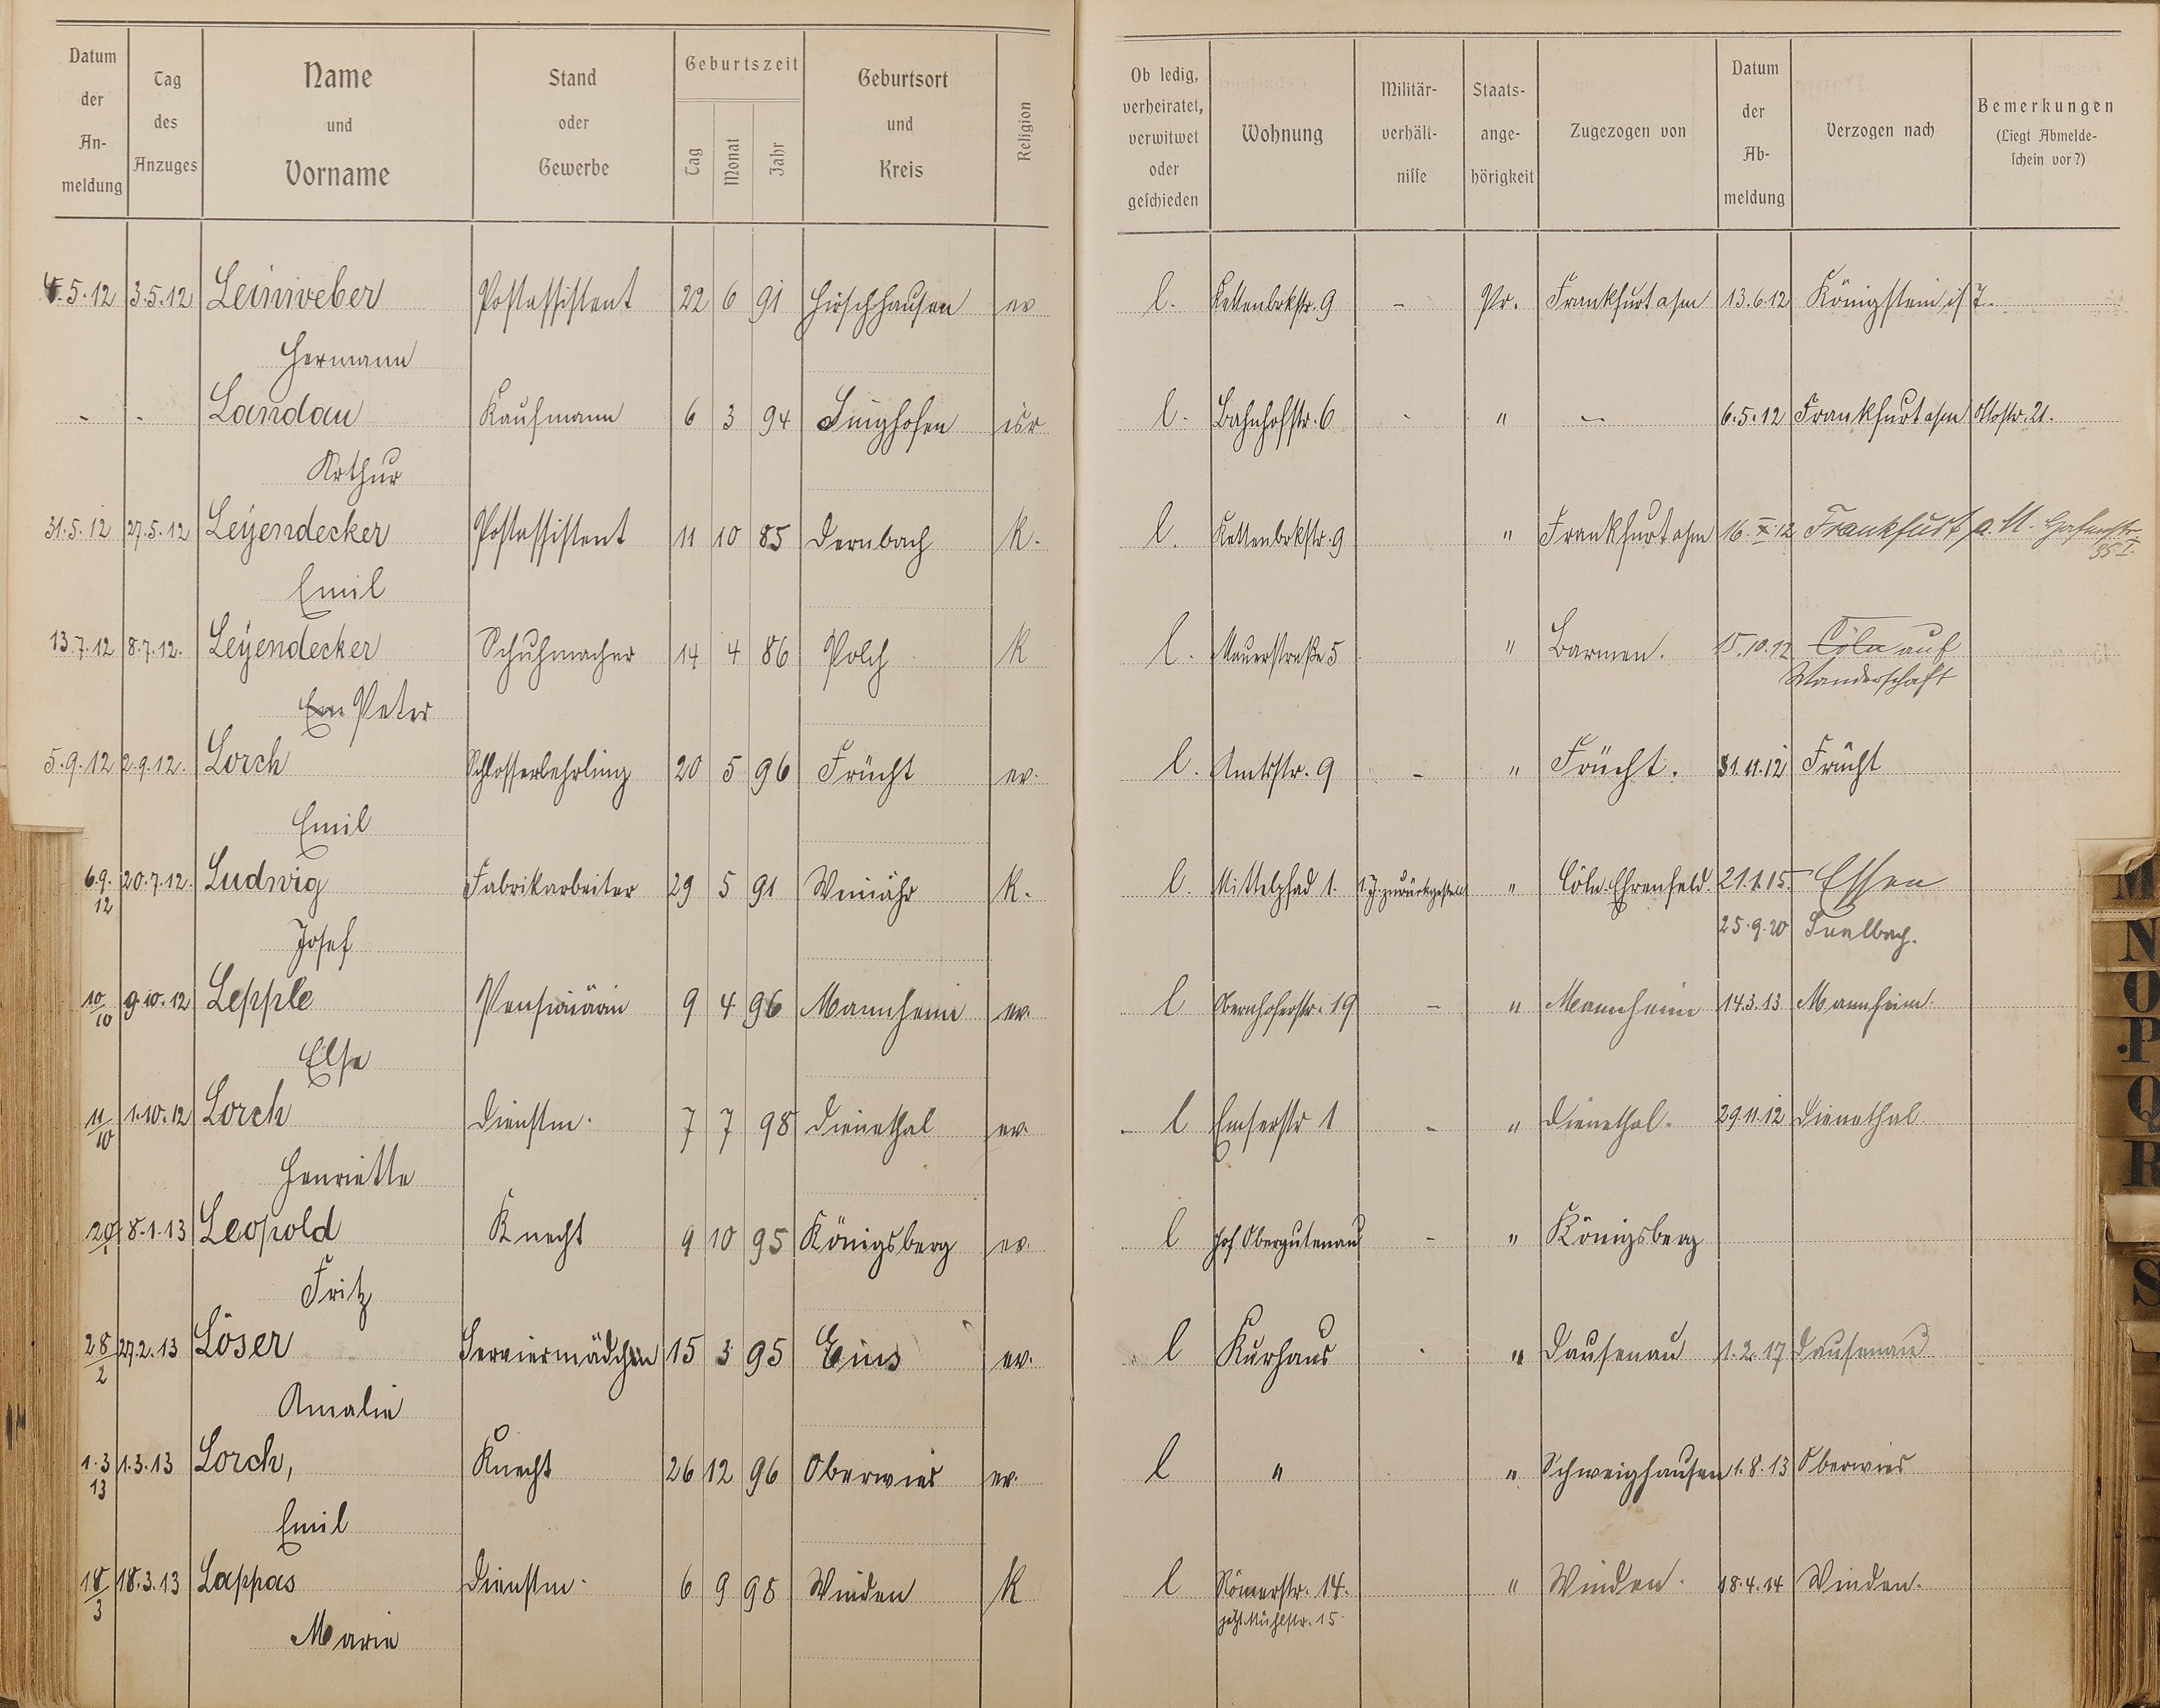 Datum der Anmeldung | Tag des Anzuges | Name und Vorname | Stand oder Gewerbe | Geburtszeit Tag Monat Jahr | Geburtsort und Kreis | Religion | Ob ledig, verheiratet, verwitwet oder geschieden | Wohnung | Militärverhältnisse | Staatsangehörigkeit | Zugezogen von | Datum der Abmeldung | Verzogen nach | Bemerkungen (Liegt Abmeldeschein vor?)
4.5.12 3.5.12 Leinweber Postassistent 22 6 91 Hirschhausen ev l. Kettenbrkstr. 9 - Pr. Frankfurt a/m 13.6.12 Königstein i/T.
Hermann
- - Landau Kaufmann 6 3 94 Singhofen isr l. Bahnhofstr. 6 - " - 6.5.12 Frankfurt a/m Ottostr. 21.
Arthur
31.5.12 27.5.12 Leyendecker Postassistent 11 10 85 Dernbach K. l. Kettenbrkstr. 9 " Frankfurt a/m 16.X.12 Frankfurt a. M.
35 I.
Emil
13.7.12 8.7.12. Leyendecker Schuhmacher 14 4 86 Polch K l. Mauerstraße 5 " Barmen. 15.10.12 Cöln auf
Wanderschaft
Em Peter
5.9.12 2.9.12. Lorch Schlosserlehrling 20 5 96 Frücht ev. l. Amtsstr. 9 - " Frücht. 31.11.12 Frücht
Emil
6.9.12 20.7.12. Ludwig Fabrikarbeiter 29 5 91 Winähr K. l. Mittelpfad 1. 1. J. zurückgestellt " Cöln-Ehrenfeld 21.1.15. Essen
25.9.20
Josef
10/10 9.10.12 Lepple Pensionärin 9 4 96 Mannheim ev. l Obernhoferstr. 19 - " Mannheim 14.3.13 Mannheim.
Else
11/10 1.10.12 Lorch Dienstm. 7 7 98 Dienethal ev. l Emserstr 1 - " Dienethal. 29.11.12 Dienethal
Henriette
20/1 8.1.13 Leopold Knecht 9 10 95 Königsberg ev. l Hof Obergutenau - " Königsberg
Fritz
28/2 27.2.13 Löser Serviermädchen 15 3 95 Ems ev. l Kurhaus - " Dausenau 1.2.17 Dausenau
Amalie
1.3.13 1.3.13 Lorch, Knecht 26 12 96 Oberwies ev. l " " Schweighausen 1.8.13 Oberwies
Emil
18/3 18.3.13 Lappas Dienstm. 6 9 98 Winden K l Römerstr. 14. " Winden. 18.4.14 Winden.
jetzt Mühlstr. 15.
Marie
M
N
O
P
Q
R
S